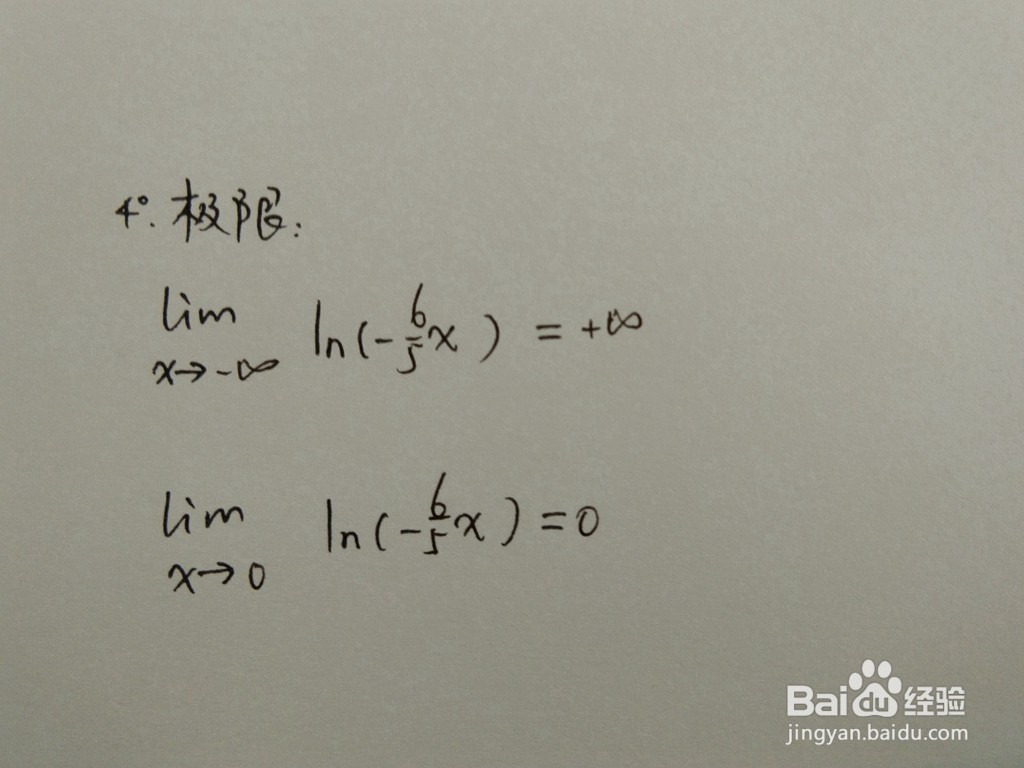 4°. 极限:
lim ln(-6/5 x) = +∞
x→-∞
lim ln(-6/5 x) = 0
x→0
Baidu经验
jingyan.baidu.com